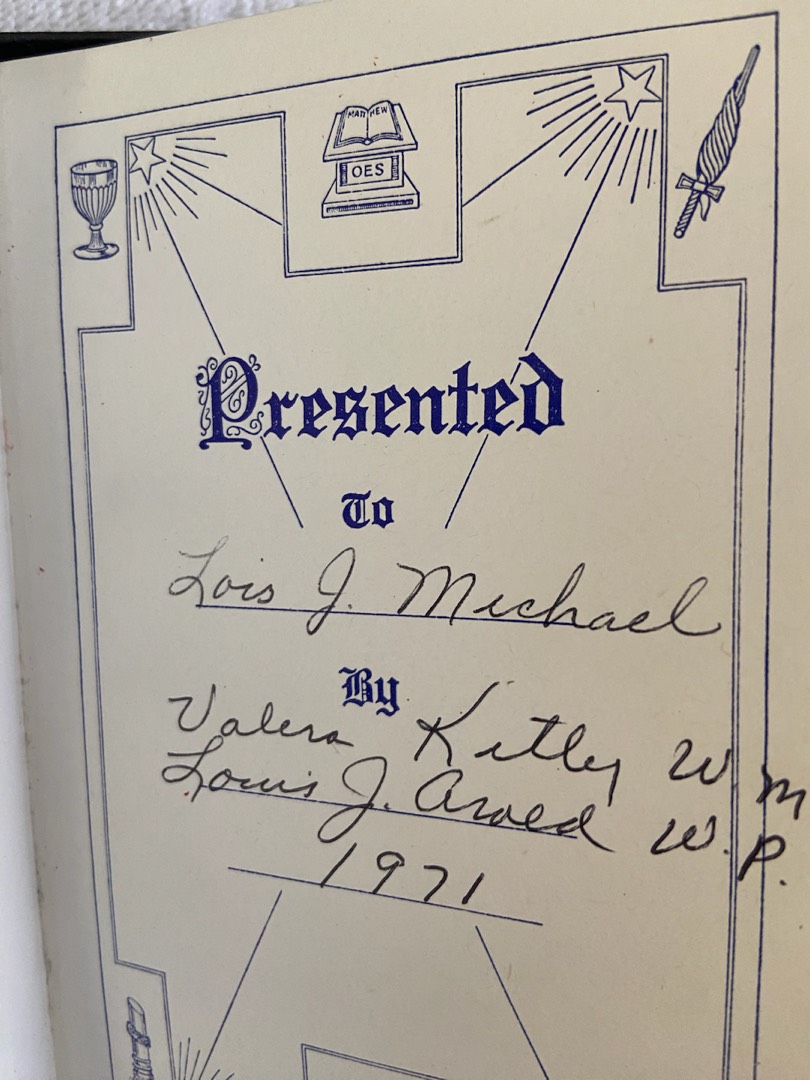 MATTHEW
OES
Presented
To
Lois J. Michael
By
Valera Kitley W.M
Louis J. W.P.
1971